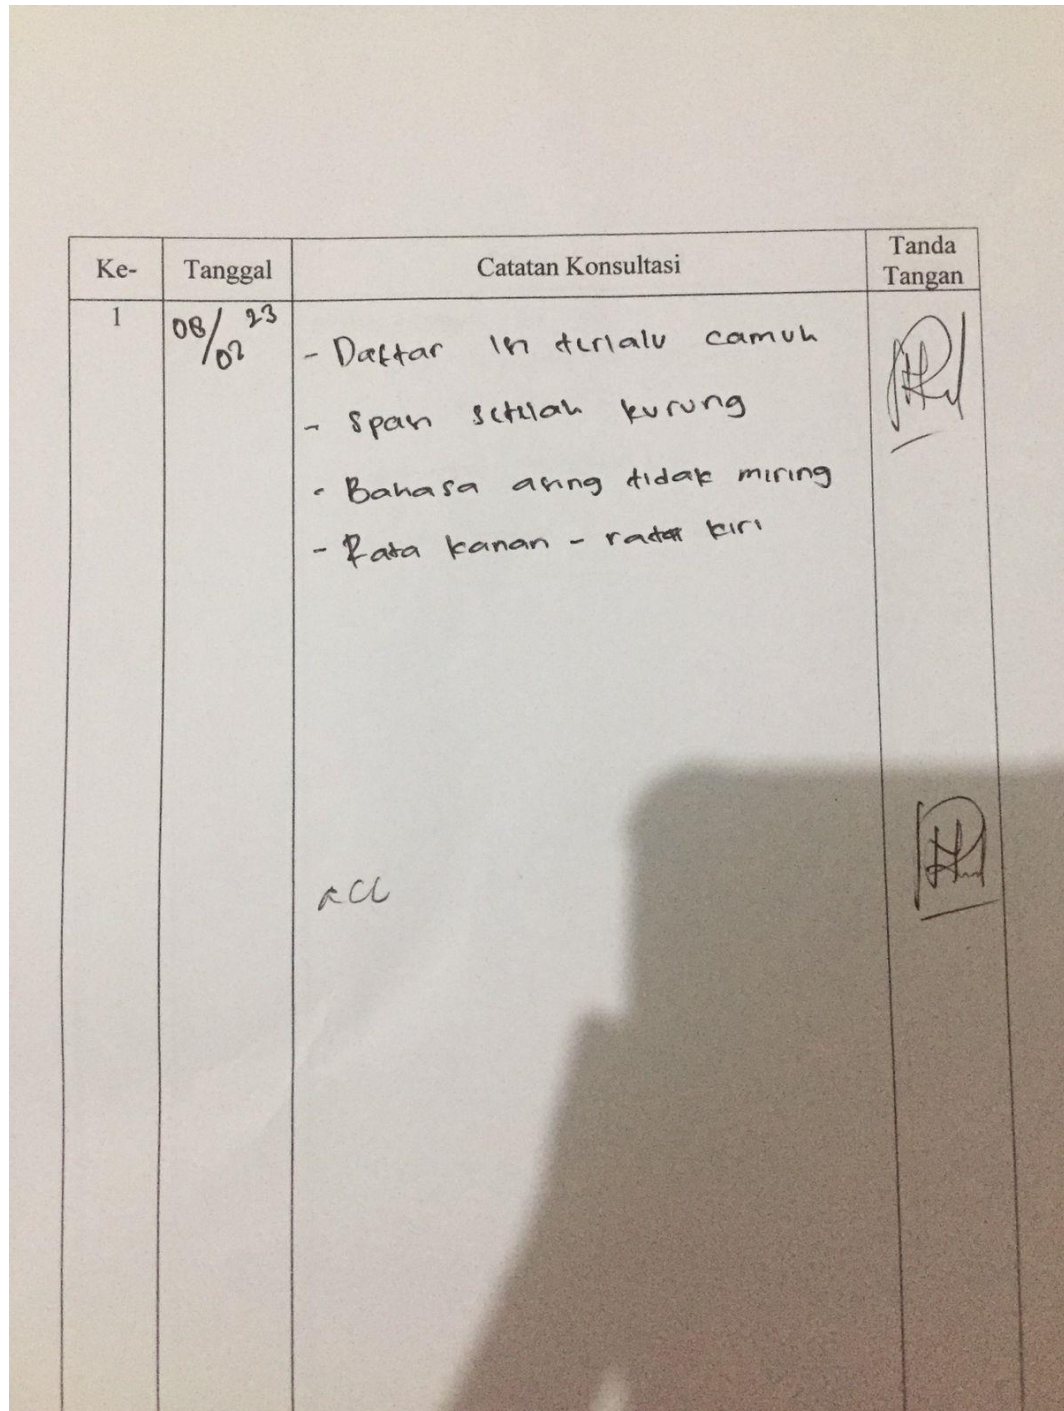 Ke- Tanggal Catatan Konsultasi Tanda Tangan
1 08/02 23
- Daftar isi terlalu camuh
- Span setelah kurung
- Bahasa asing tidak miring
- Rata kanan - rata kiri
acc